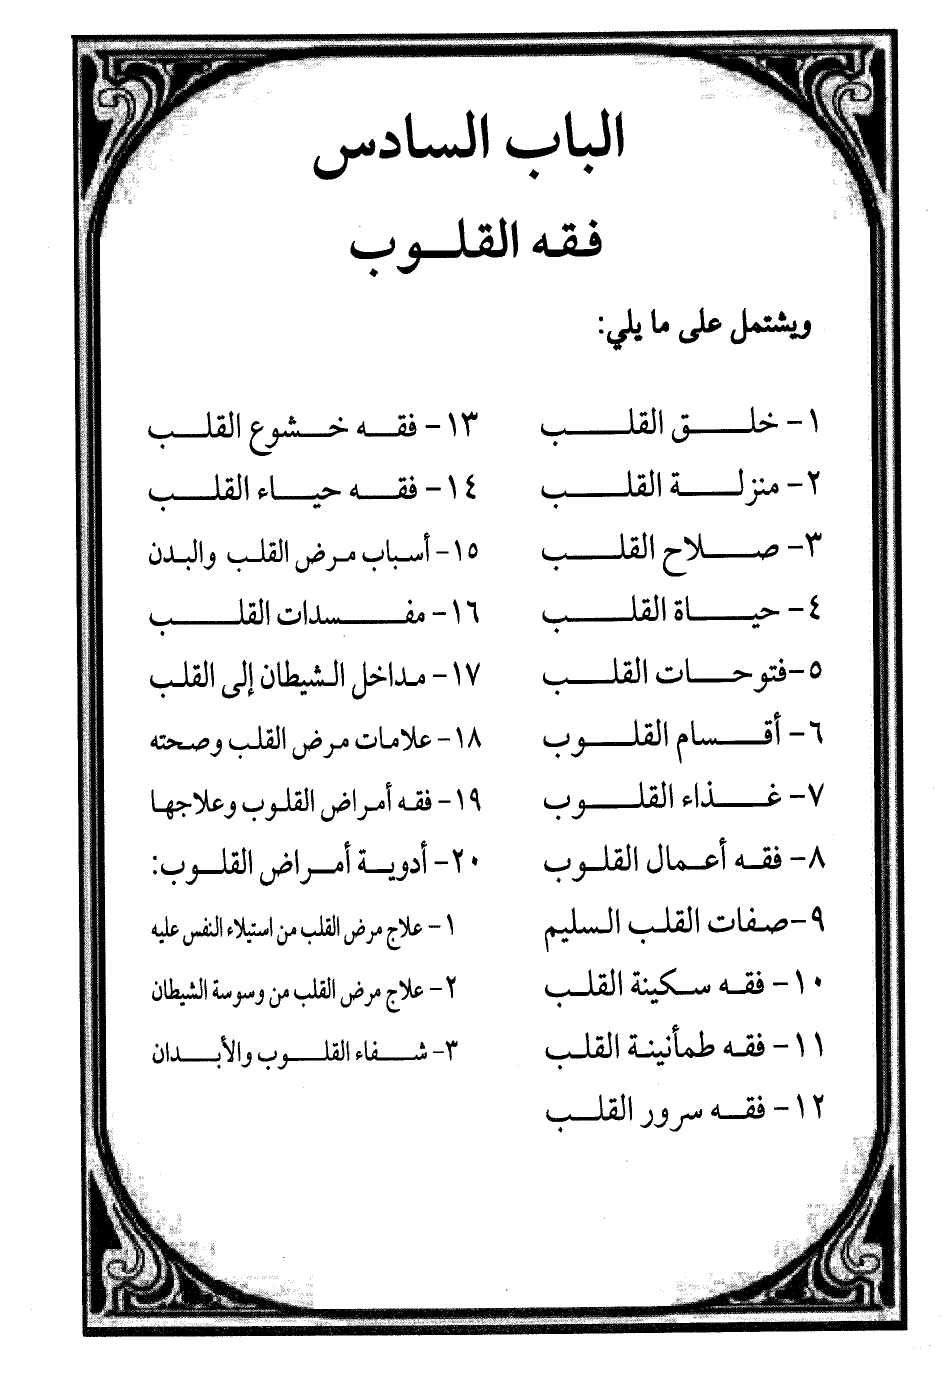 الباب السادس
فقه القلوب
ويشتمل على ما يلي:
١- خلق القلب
٢- منزلة القلب
٣- صلاح القلب
٤- حياة القلب
٥- فتوحات القلب
٦- أقسام القلوب
٧- غذاء القلوب
٨- فقه أعمال القلوب
٩- صفات القلب السليم
١٠- فقه سكينة القلب
١١- فقه طمأنينة القلب
١٢- فقه سرور القلب
١٣- فقه خشوع القلب
١٤- فقه حياء القلب
١٥- أسباب مرض القلب والبدن
١٦- مفسدات القلب
١٧- مداخل الشيطان إلى القلب
١٨- علامات مرض القلب وصحته
١٩- فقه أمراض القلوب وعلاجها
٢٠- أدوية أمراض القلوب:
١- علاج مرض القلب من استيلاء النفس عليه
٢- علاج مرض القلب من وسوسة الشيطان
٣- شفاء القلوب والأبدان